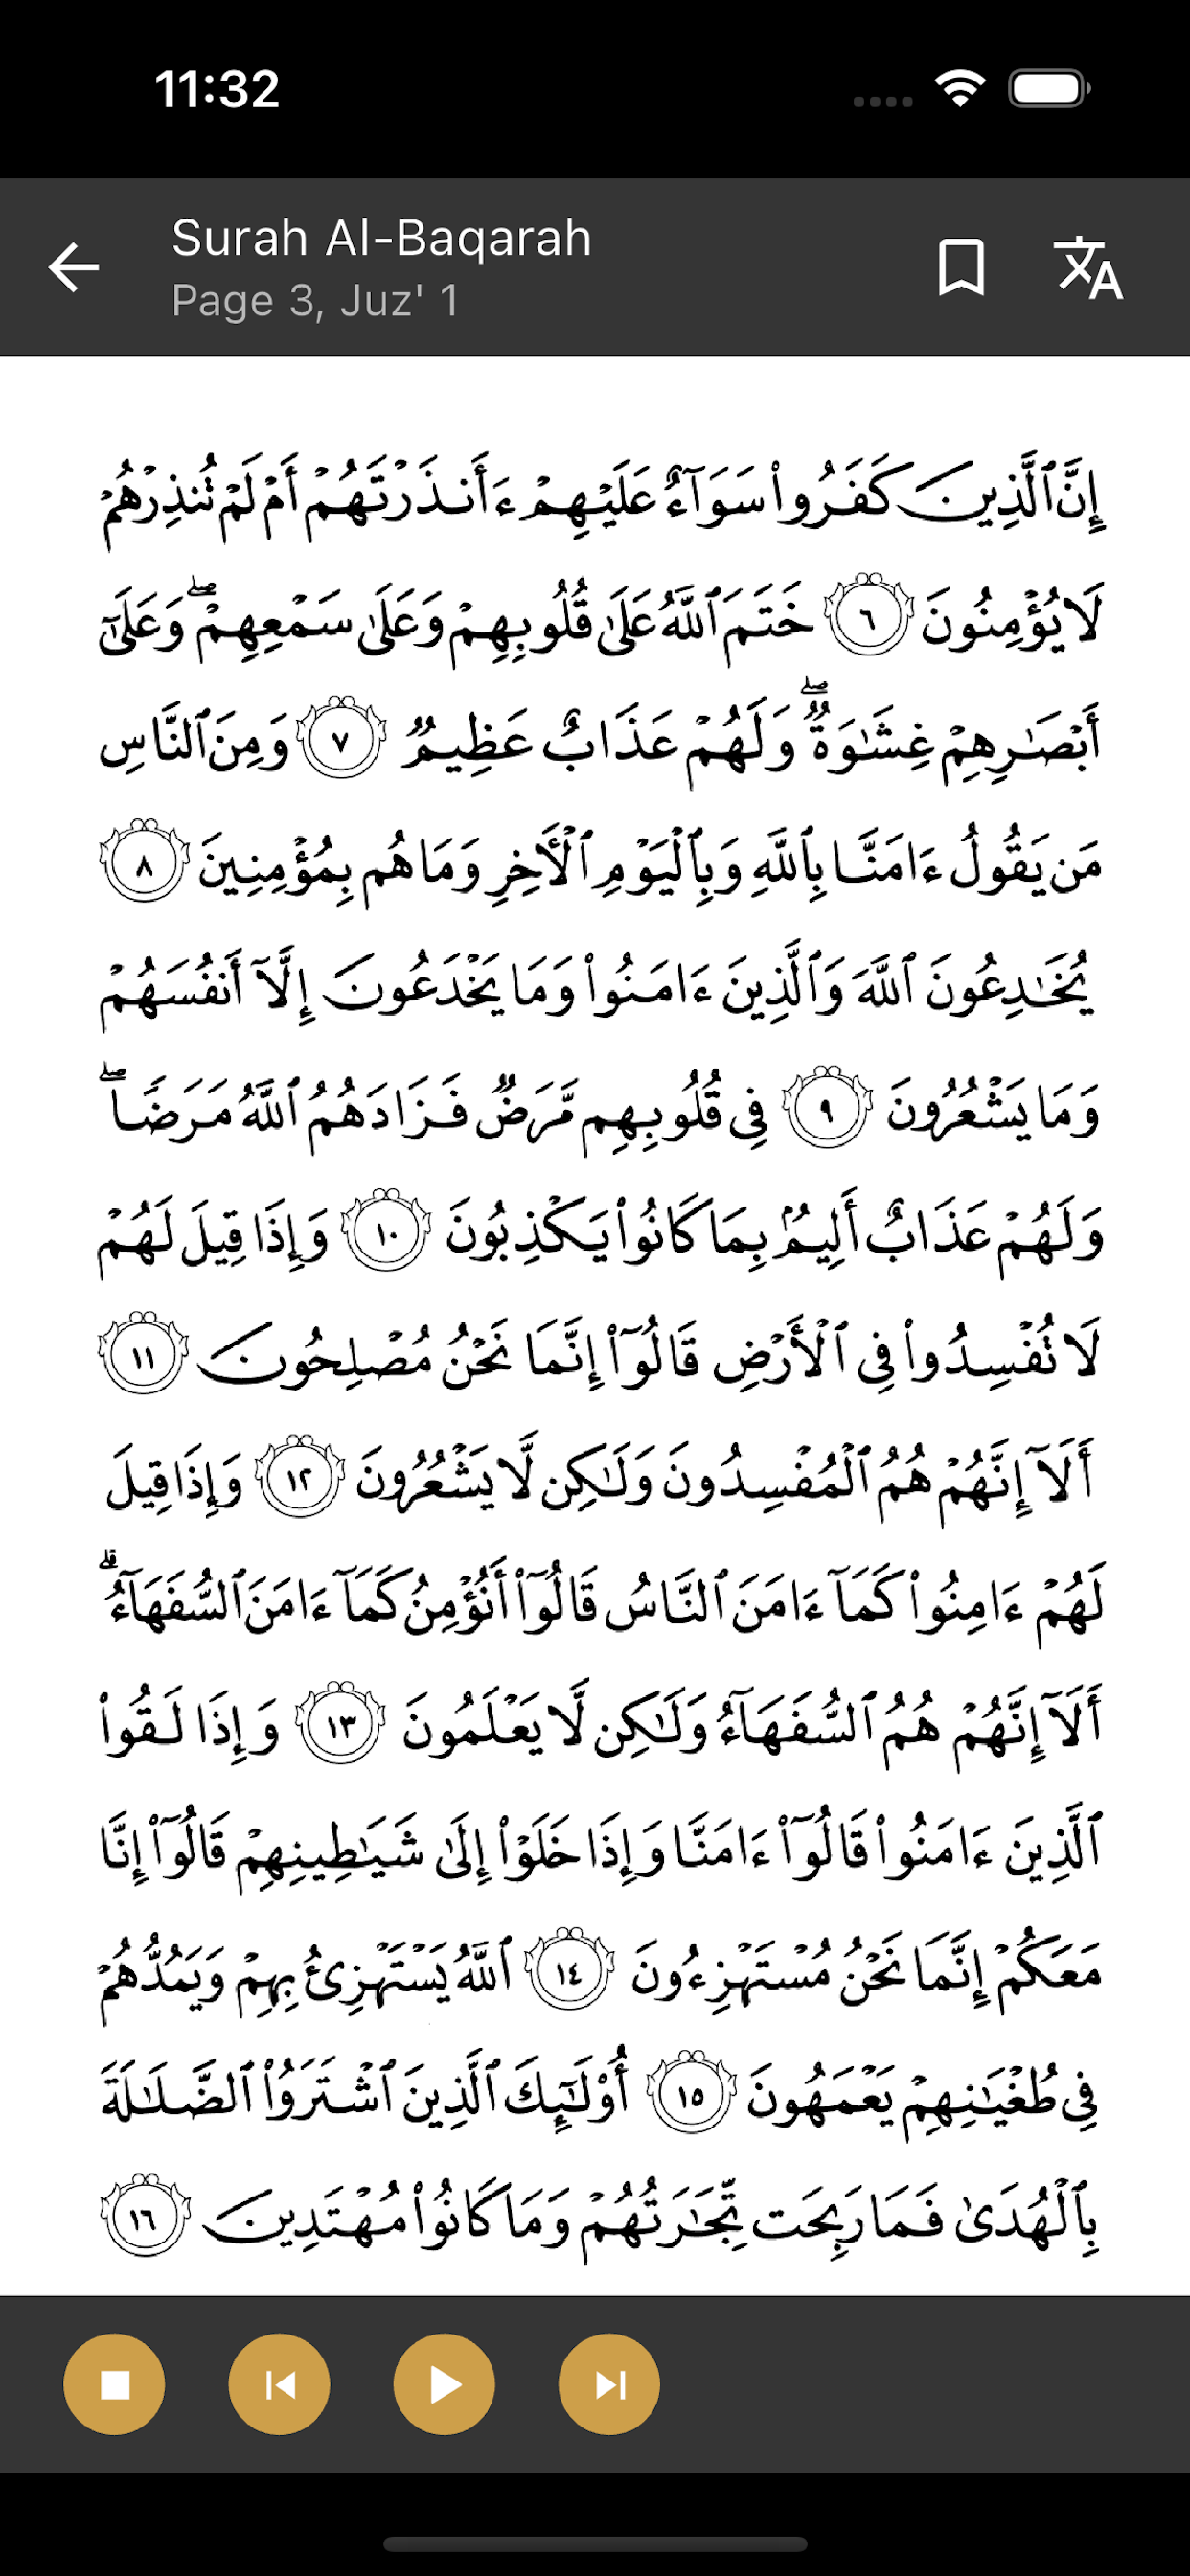 11:32
Surah Al-Baqarah
Page 3, Juz' 1
إِنَّ ٱلَّذِينَ كَفَرُوا۟ سَوَآءٌ عَلَيْهِمْ ءَأَنذَرْتَهُمْ أَمْ لَمْ تُنذِرْهُمْ
لَا يُؤْمِنُونَ ٦ خَتَمَ ٱللَّهُ عَلَىٰ قُلُوبِهِمْ وَعَلَىٰ سَمْعِهِمْ ۖ وَعَلَىٰٓ
أَبْصَـٰرِهِمْ غِشَـٰوَةٌ ۖ وَلَهُمْ عَذَابٌ عَظِيمٌ ٧ وَمِنَ ٱلنَّاسِ
مَن يَقُولُ ءَامَنَّا بِٱللَّهِ وَبِٱلْيَوْمِ ٱلْـَٔاخِرِ وَمَا هُم بِمُؤْمِنِينَ ٨
يُخَـٰدِعُونَ ٱللَّهَ وَٱلَّذِينَ ءَامَنُوا۟ وَمَا يَخْدَعُونَ إِلَّآ أَنفُسَهُمْ
وَمَا يَشْعُرُونَ ٩ فِى قُلُوبِهِم مَّرَضٌ فَزَادَهُمُ ٱللَّهُ مَرَضًا ۖ
وَلَهُمْ عَذَابٌ أَلِيمٌۢ بِمَا كَانُوا۟ يَكْذِبُونَ ١٠ وَإِذَا قِيلَ لَهُمْ
لَا تُفْسِدُوا۟ فِى ٱلْأَرْضِ قَالُوٓا۟ إِنَّمَا نَحْنُ مُصْلِحُونَ ١١
أَلَآ إِنَّهُمْ هُمُ ٱلْمُفْسِدُونَ وَلَـٰكِن لَّا يَشْعُرُونَ ١٢ وَإِذَا قِيلَ
لَهُمْ ءَامِنُوا۟ كَمَآ ءَامَنَ ٱلنَّاسُ قَالُوٓا۟ أَنُؤْمِنُ كَمَآ ءَامَنَ ٱلسُّفَهَآءُ ۗ
أَلَآ إِنَّهُمْ هُمُ ٱلسُّفَهَآءُ وَلَـٰكِن لَّا يَعْلَمُونَ ١٣ وَإِذَا لَقُوا۟
ٱلَّذِينَ ءَامَنُوا۟ قَالُوٓا۟ ءَامَنَّا وَإِذَا خَلَوْا۟ إِلَىٰ شَيَـٰطِينِهِمْ قَالُوٓا۟ إِنَّا
مَعَكُمْ إِنَّمَا نَحْنُ مُسْتَهْزِءُونَ ١٤ ٱللَّهُ يَسْتَهْزِئُ بِهِمْ وَيَمُدُّهُمْ
فِى طُغْيَـٰنِهِمْ يَعْمَهُونَ ١٥ أُو۟لَـٰٓئِكَ ٱلَّذِينَ ٱشْتَرَوُا۟ ٱلضَّلَـٰلَةَ
بِٱلْهُدَىٰ فَمَا رَبِحَت تِّجَـٰرَتُهُمْ وَمَا كَانُوا۟ مُهْتَدِينَ ١٦